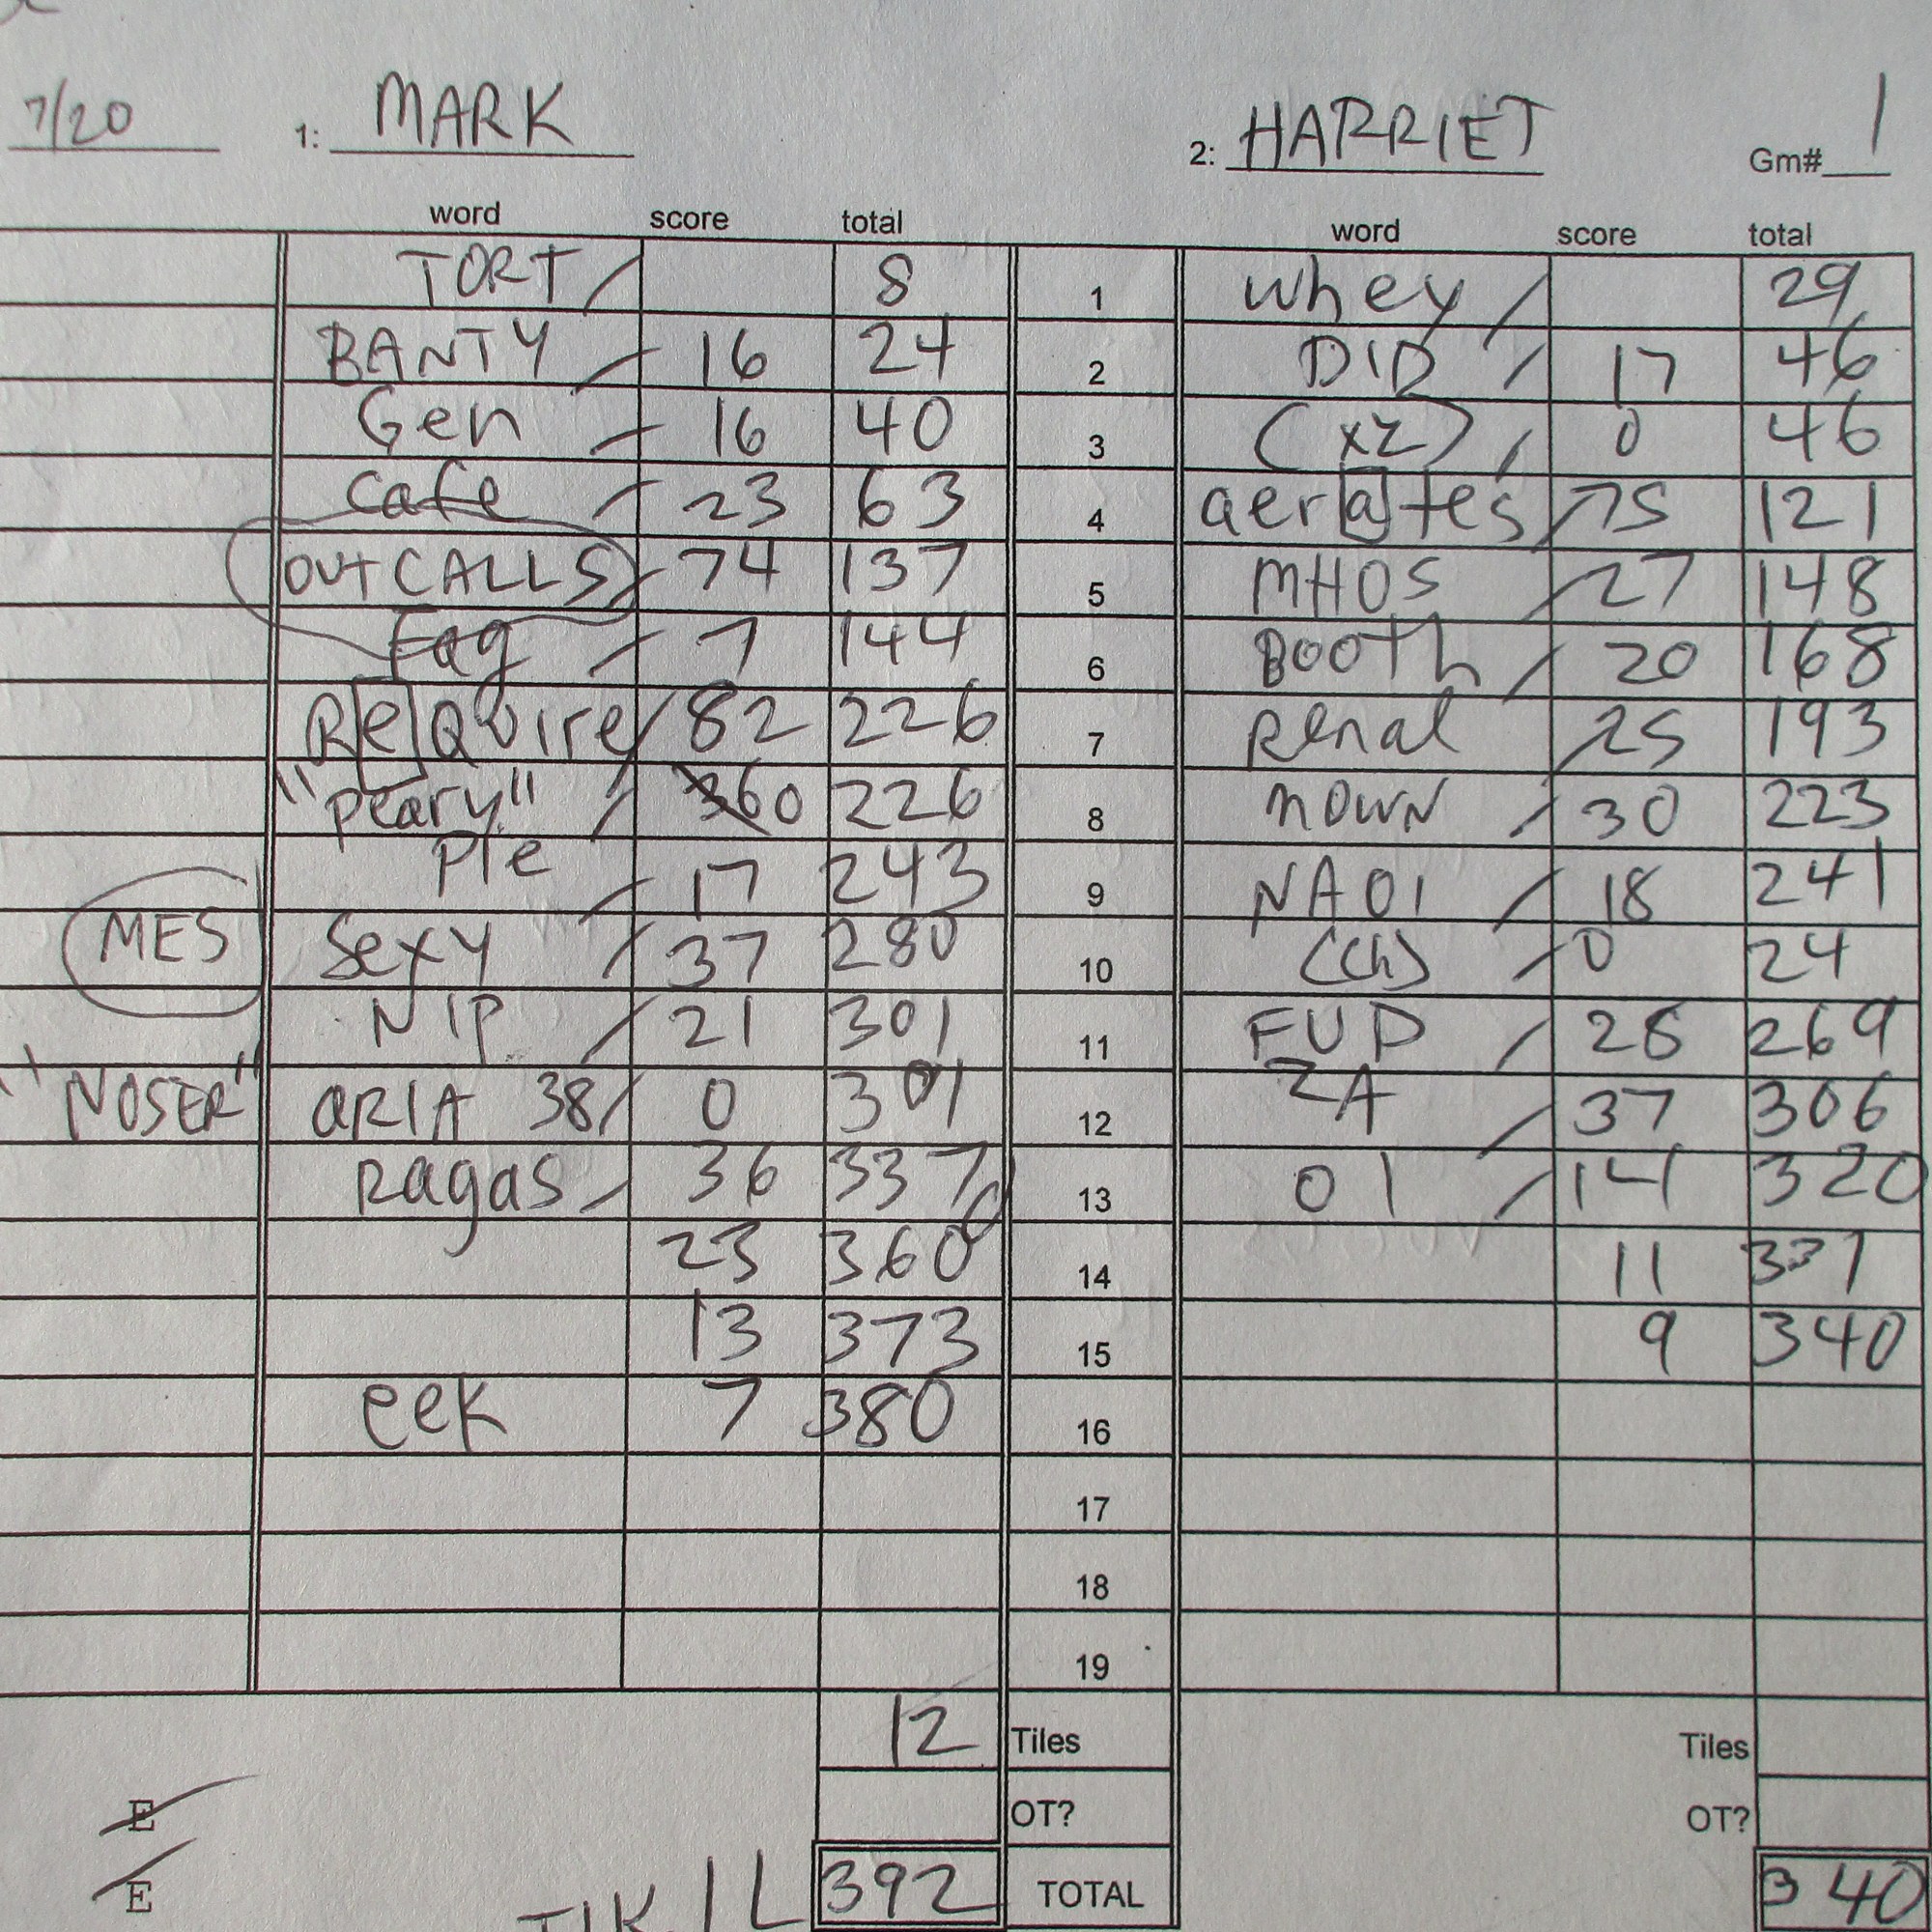 7/20 1: MARK 2: HARRIET Gm# 1
word score total word score total
TORT 8 1 whey 29
BANTY 16 24 2 DID 17 46
Gen 16 40 3 (xz) 0 46
cafe 23 63 4 aerates 75 121
OUTCALLS 74 137 5 MHOS 27 148
Fag 7 144 6 BOOTh 20 168
ReQuire 82 226 7 Renal 25 193
"peary" 0 226 8 nOWN 30 223
PIe 17 243 9 NAOI 18 241
MES Sexy 37 280 10 (Ch) 0 24
NIP 21 301 11 FUD 28 269
"NOSER" aRIA 38 0 301 12 ZA 37 306
Ragas 36 337 13 OI 14 320
23 360 14 11 331
13 373 15 9 340
eeK 7 380 16
17
18
19
12 Tiles Tiles
E OT? OT?
E 392 TOTAL 340